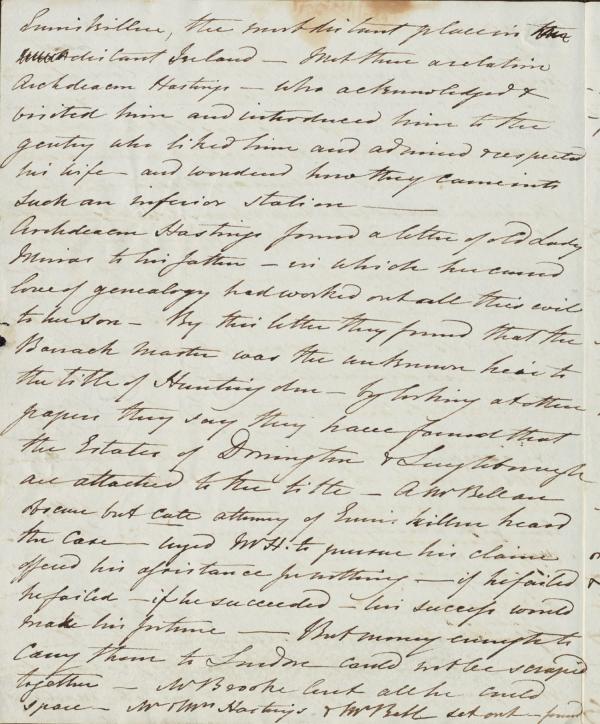 Enniskillen, the most distant place in the
most distant Ireland — Met there a relation
Archdeacon Hastings — who acknowledged &
visited him and introduced him to the
gentry who liked him and admired & respected
his wife — and wondered how they came into
such an inferior station —
Archdeacon Hastings found a letter of old Lady
Moiras to his father — in which her cursed
love of genealogy had worked out all this evil
to her son — By this letter they found that the
Barrack Master was the unknown heir to
the title of Huntingdon — by looking at other
papers they say they have found that
the Estates of Donnington & Loughborough
are attached to the title — A Mr Bell an
obscure but cute attorney of Enniskillen heard
the case — urged Mr H. to pursue his claim
offered his assistance for nothing — if he failed
he failed — if he succeeded — his success would
make his fortune — But money enough to
carry them to London could not be scraped
together — Mr Brooke lent all he could
spare — Mr & Mrs Hastings & Mr Bell set out — found